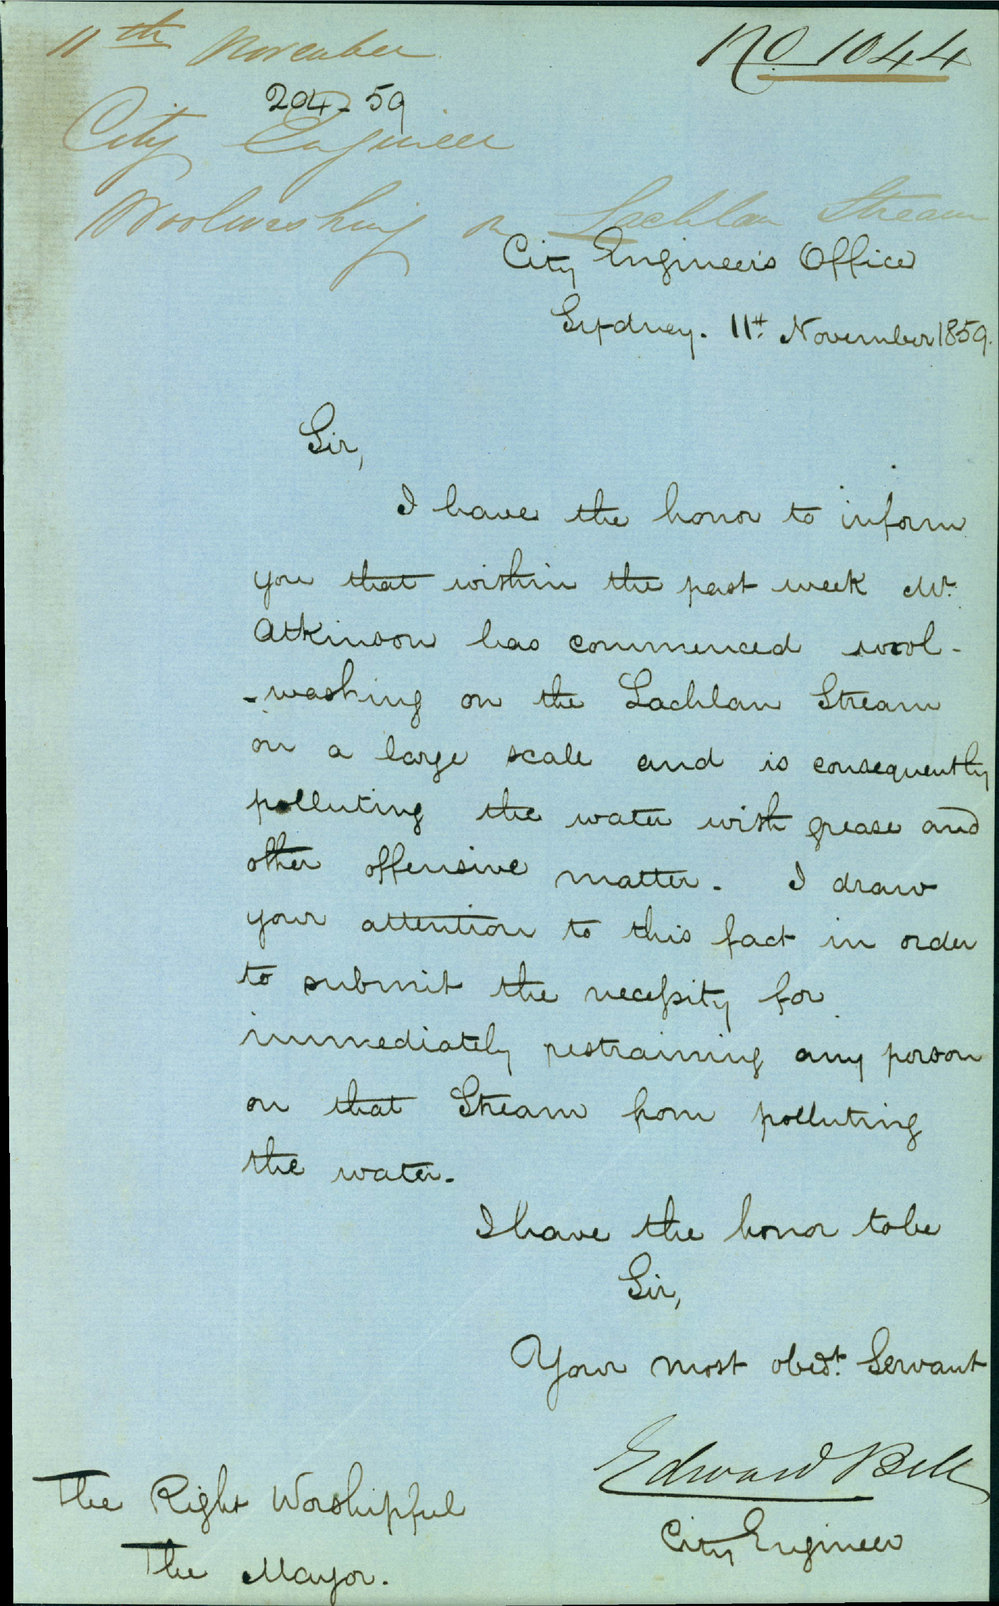 11th November
No 1044
204-59
City Engineer
Woolwashing on Lachlan Stream
City Engineer's Office
Sydney. 11th. November 1859.
Sir,
I have the honor to inform
you that within the past week Mr.
Atkinson has commenced wool-
-washing on the Lachlan Stream
on a large scale and is consequently
polluting the water with grease and
other offensive matter. I draw
your attention to this fact in order
to submit the necessity for
immediately restraining any person
on that Stream from polluting
the water.
I have the honor to be
Sir,
Your most obedt. Servant
Edward Bell
City Engineer
The Right Worshipful
The Mayor.